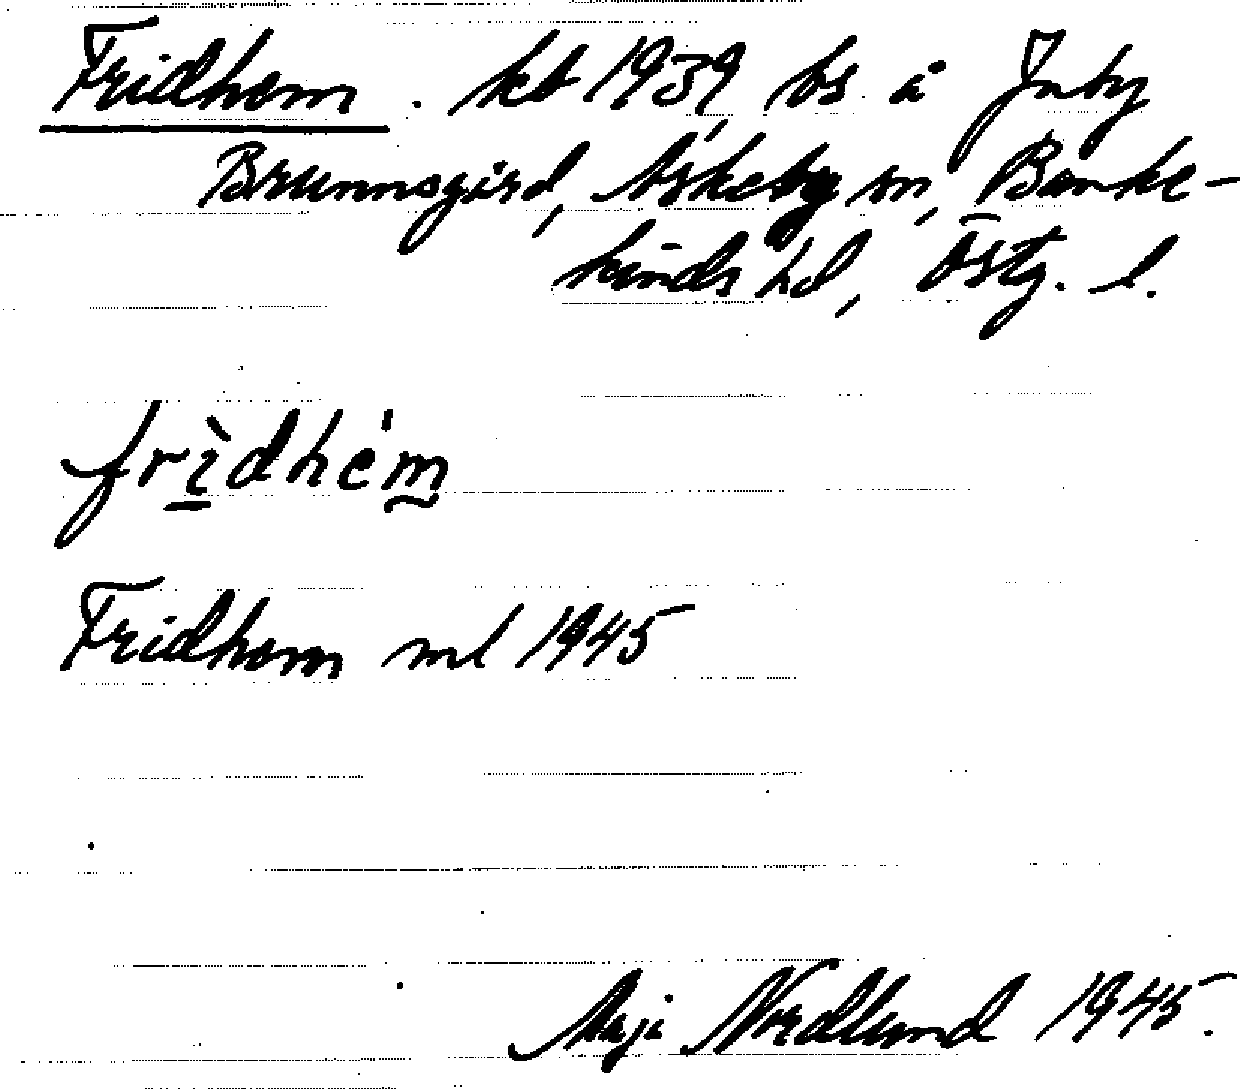 Fridhem. kt 1939, bs å Juby
Brunnsgård, Askeby sn, Banke-
kinds hd, Östg. l.
frìdhém
Fridhem ml 1945
Maja Nordlund 1945.